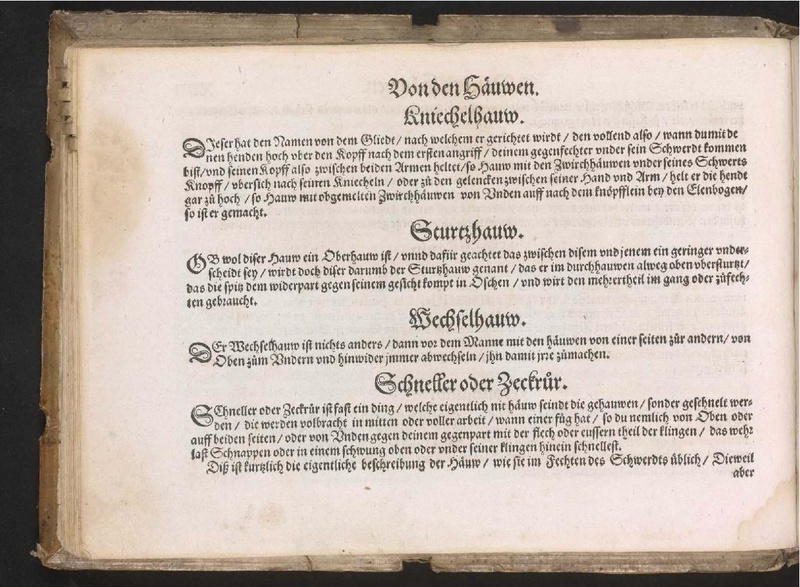 Von den Häuwen.
Kniechelhauw.
DIeser hat den Namen von dem Gliedt / nach welchem er gerichtet wirdt / den vollend also / wann du mit de
nen henden hoch vber den Kopff nach dem ersten angriff / deinem gegenfechter vnder sein Schwerdt kommen
bist / vnd seinen Kopff also zwischen beiden Armen heltet / so Hauw mit den Zwirchhäuwen vnder seines Schwerts
Knopff / vbersich nach seinen Kniecheln / oder zů den gelencken zwischen seiner Hand vnd Arm / helt er die hendt
gar zů hoch / so Hauw mit obgemelten Zwirchhäuwen von Vnden auff nach dem knöpfflein bey den Elenbogen /
so ist er gemacht.
Sturtzhauw.
OB wol diser Hauw ein Oberhauw ist / vnnd dafür geachtet das zwischen disem vnd jenem ein geringer vnder-
scheidt sey / wirdt doch diser darumb der Sturtzhauw genant / das er im durchhauwen alweg oben vbersturtzt /
das die spitz dem widerpart gegen seinem gesicht kompt in Ochsen / vnd wirt den mehrertheil im gang oder zůfech-
ten gebraucht.
Wechselhauw.
DEr Wechselhauw ist nichts anders / dann vor dem Manne mit den häuwen von einer seiten zůr andern / von
Oben zům Vndern vnd hinwider jmmer abwechseln / jhn damit jrre zůmachen.
Schneller oder Zeckrůr.
SChneller oder Zeckrůr ist fast ein ding / welche eigentlich nit häuw seindt die gehauwen / sonder geschnelt wer-
den / die werden volbracht in mitten oder voller arbeit / wann einer fůg hat / so du nemlich von Oben oder
auff beiden seiten / oder von Vnden gegen deinem gegenpart mit der flech oder eussern theil der klingen / das wehr
last Schnappen oder in einem schwung oben oder vnder seiner klingen hinein schnellest.
Diß ist kurtzlich die eigentliche beschreibung der Häuw / wie sie im Fechten des Schwerdts üblich / Dieweil
aber